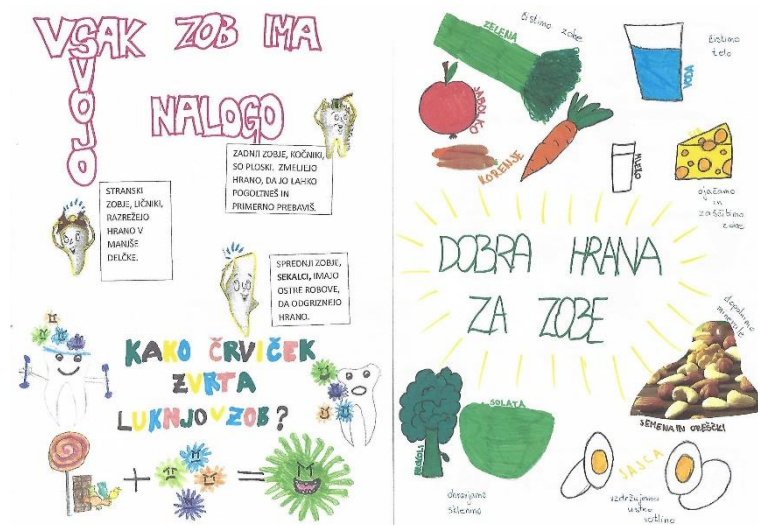 VSAK ZOB IMA
SVOJO
NALOGO
ZADNJI ZOBJE, KOČNIKI,
SO PLOSKI. ZMELJEJO
HRANO, DA JO LAHKO
POGOLTNEŠ IN
PRIMERNO PREBAVIŠ.
STRANSKI
ZOBJE, LIČNIKI,
RAZREŽEJO
HRANO V
MANJŠE
DELČKE.
SPREDNJI ZOBJE,
SEKALCI, IMAJO
OSTRE ROBOVE,
DA ODGRIZNEJO
HRANO.
KAKO ČRVIČEK
ZVRTA
LUKNJO V ZOB?
+ =
ZELENA
čistimo zobe
JABOLKO
KORENJE
VODA
čistimo
telo
MLEKO
ojačamo
in
zaščitimo
zobe
DOBRA HRANA
ZA ZOBE
dopolnimo
minerale
SEMENA IN OREŠČKI
BROKOLI
SOLATA
ohranjamo
sklenino
JAJCA
vzdržujemo
ustno
votlino